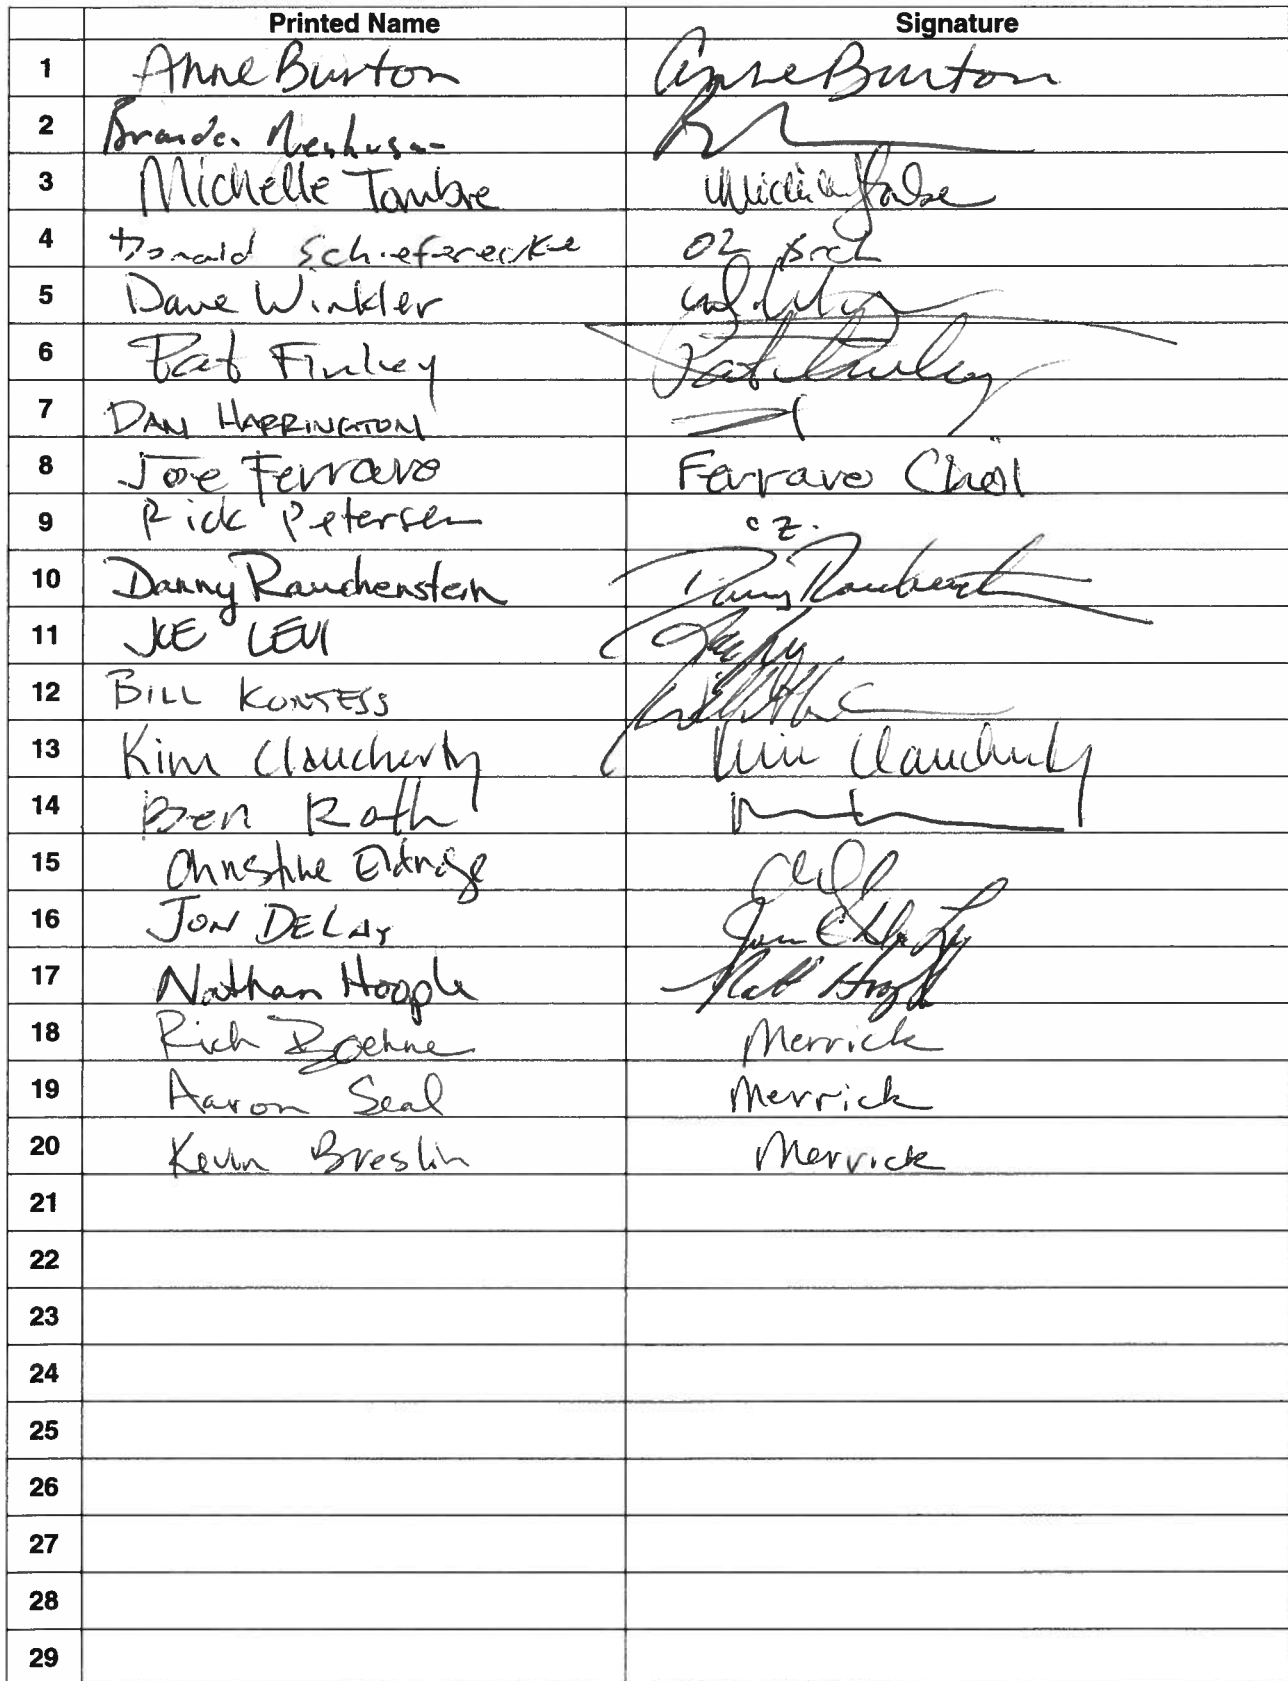 Printed Name Signature
1 Anne Burton Anne Burton
2
3 Michelle Tombre
4 Donald Schieferecke 02 Arch
5 Dave Winkler
6 Pat Finley Pat Finley
7 DAN HARRINGTON
8 Joe Ferraro Ferraro Choi
9 Rick Petersen oz.
10 Danny Rauchenstein Danny Rauchenstein
11 JOE LEVI
12 BILL KONTESS
13 Kim Claucherty Kim Claucherty
14 Ben Roth
15 Christine Eldridge
16 JON DELAY
17 Nathan Hoople
18 Rich Boehne Merrick
19 Aaron Seal Merrick
20 Kevin Breslin Merrick
21
22
23
24
25
26
27
28
29